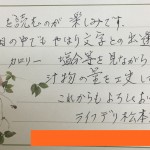 を読むのが 楽しみです。
の中でも やはり文字との出逢
カロリー 塩分等を見ながら
汁物の量を工夫し
これからもよろしくお
ライフデリ松本